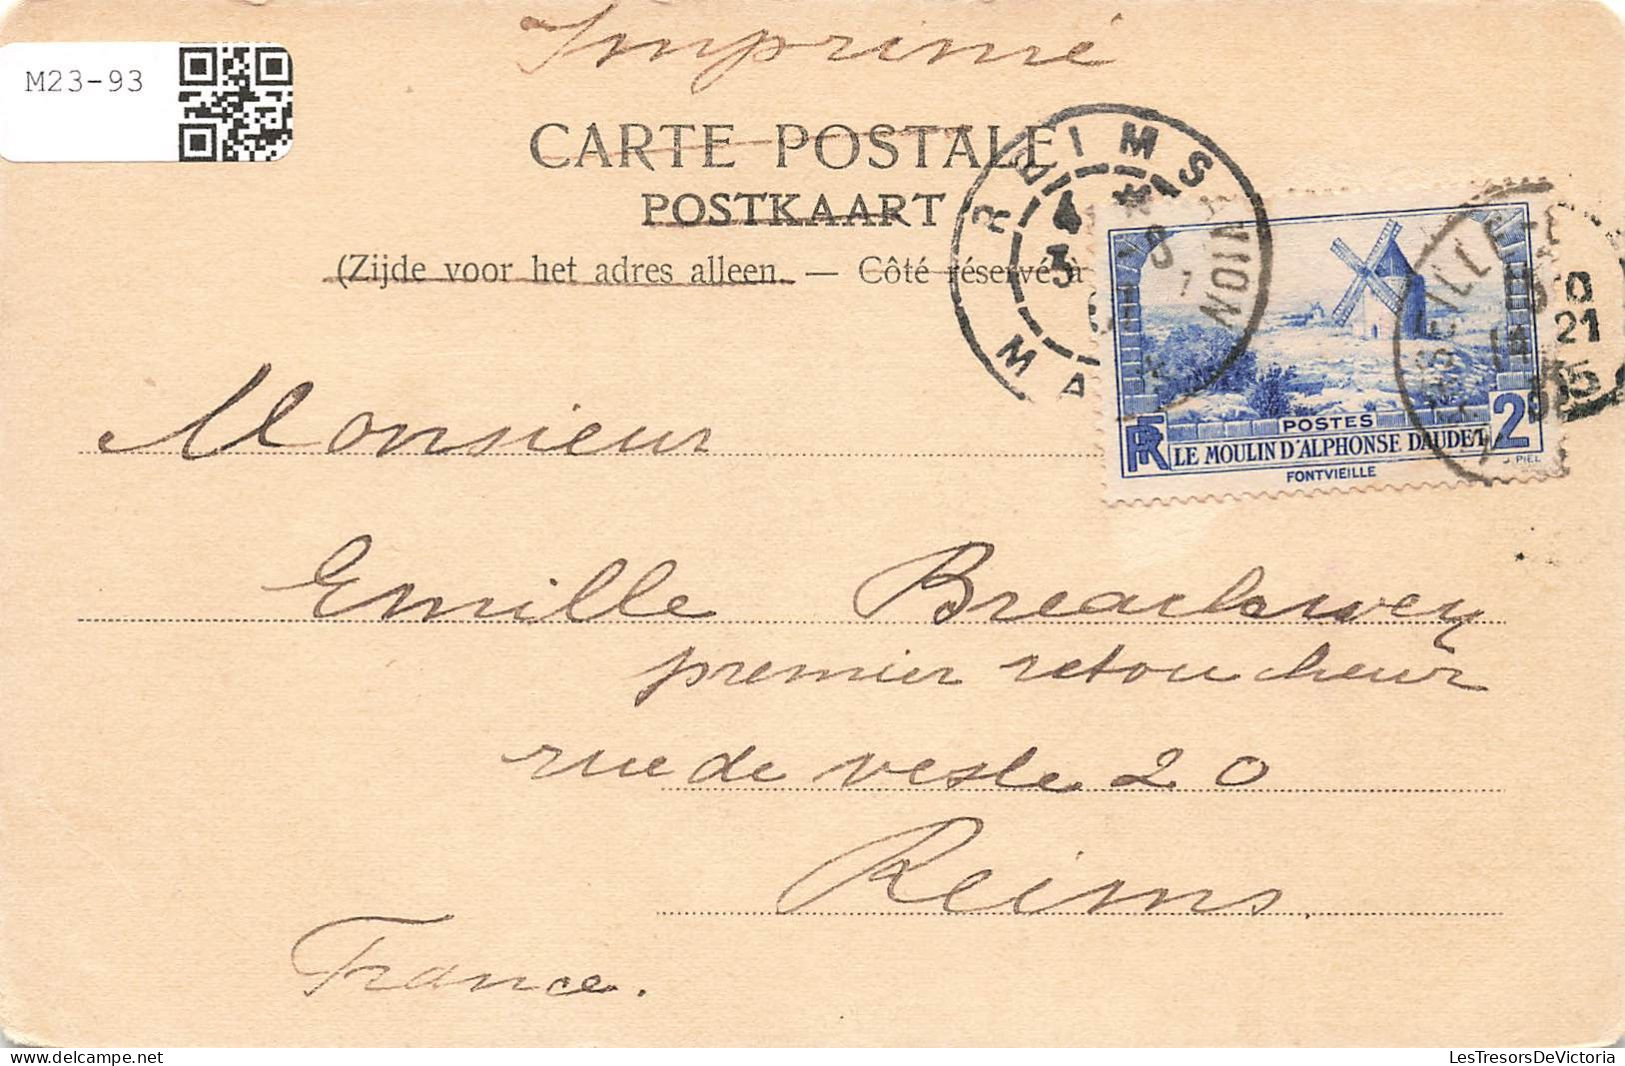 Imprimé
M23-93
CARTE POSTALE
POSTKAART
(Zijde voor het adres alleen. — Côté réservé à
REIMS
MA
NOIN
POSTES
RF
2F
LE MOULIN D'ALPHONSE DAUDET
FONTVIEILLE
J. PIEL
Monsieur
Emille
premier retoucheur
rue de vesle 20
Reims
France.
LesTresorsDeVictoria